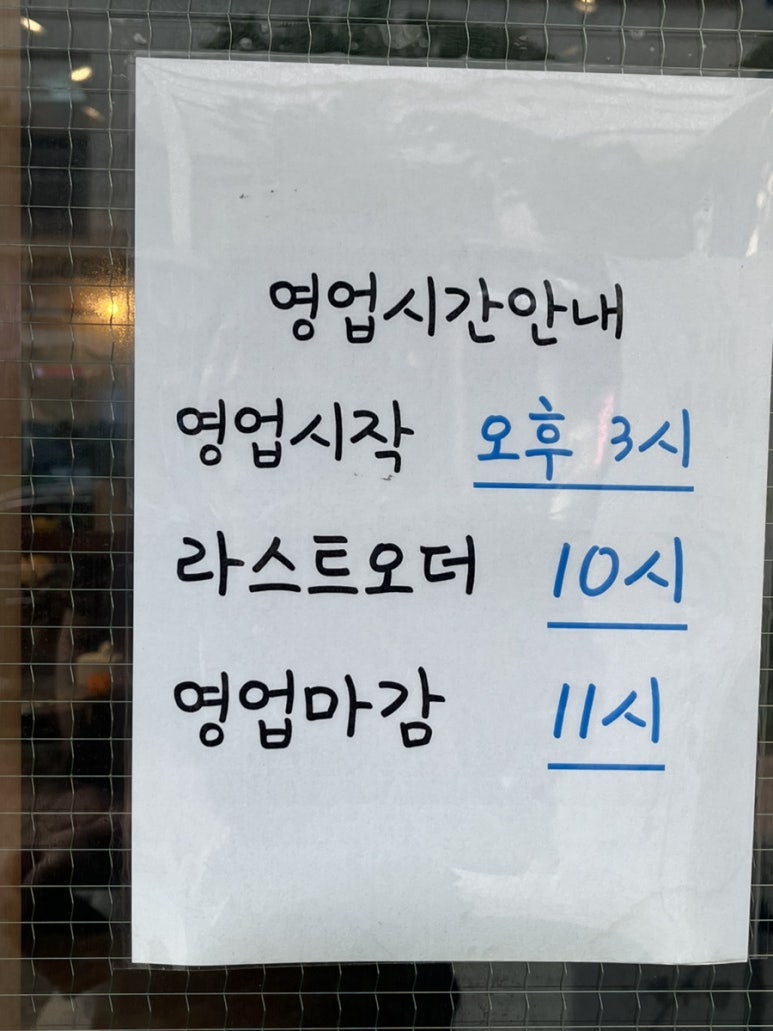 영업시간안내
영업시작 오후 3시
라스트오더 10시
영업마감 11시